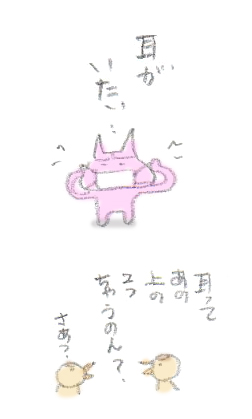 耳が
いたい…
耳って
あの
上の
2つ
ちゃうのん?
さあ?